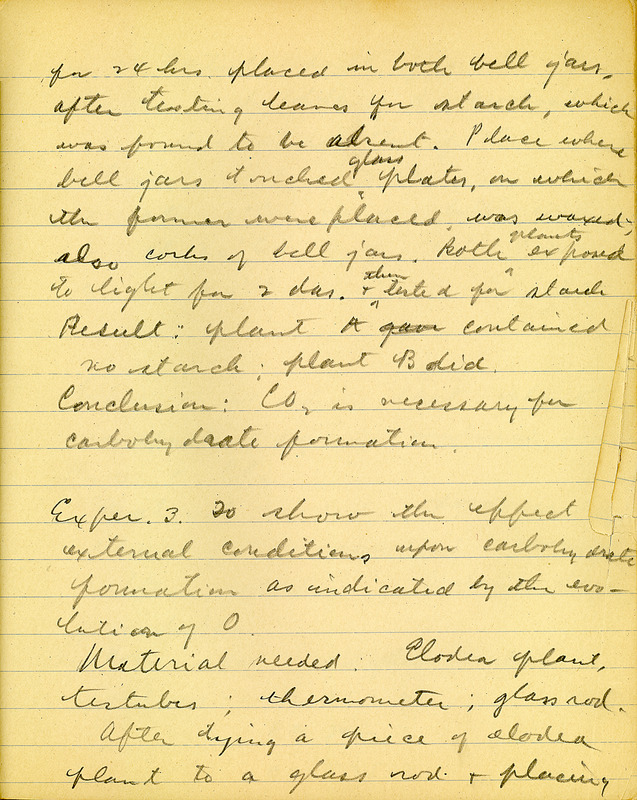 for 24 hrs. placed in both bell jars,
after testing leaves for starch, which
was found to be absent. Place where
bell jars touched glass plates, on which
the former were placed, was waxed;
also corks of bell jars. Both plants exposed
to light for 2 das. & then tested for starch
Result: plant A gave contained
no starch; plant B did.
Conclusion: CO2 is necessary for
carbohydrate formation.
Exper. 3. To show the effect
external conditions upon carbohydrate
formation as indicated by the evo-
lution of O.
Material needed. Elodea plant,
testubes; thermometer; glass rod.
After tying a piece of elodea
plant to a glass rod & placing